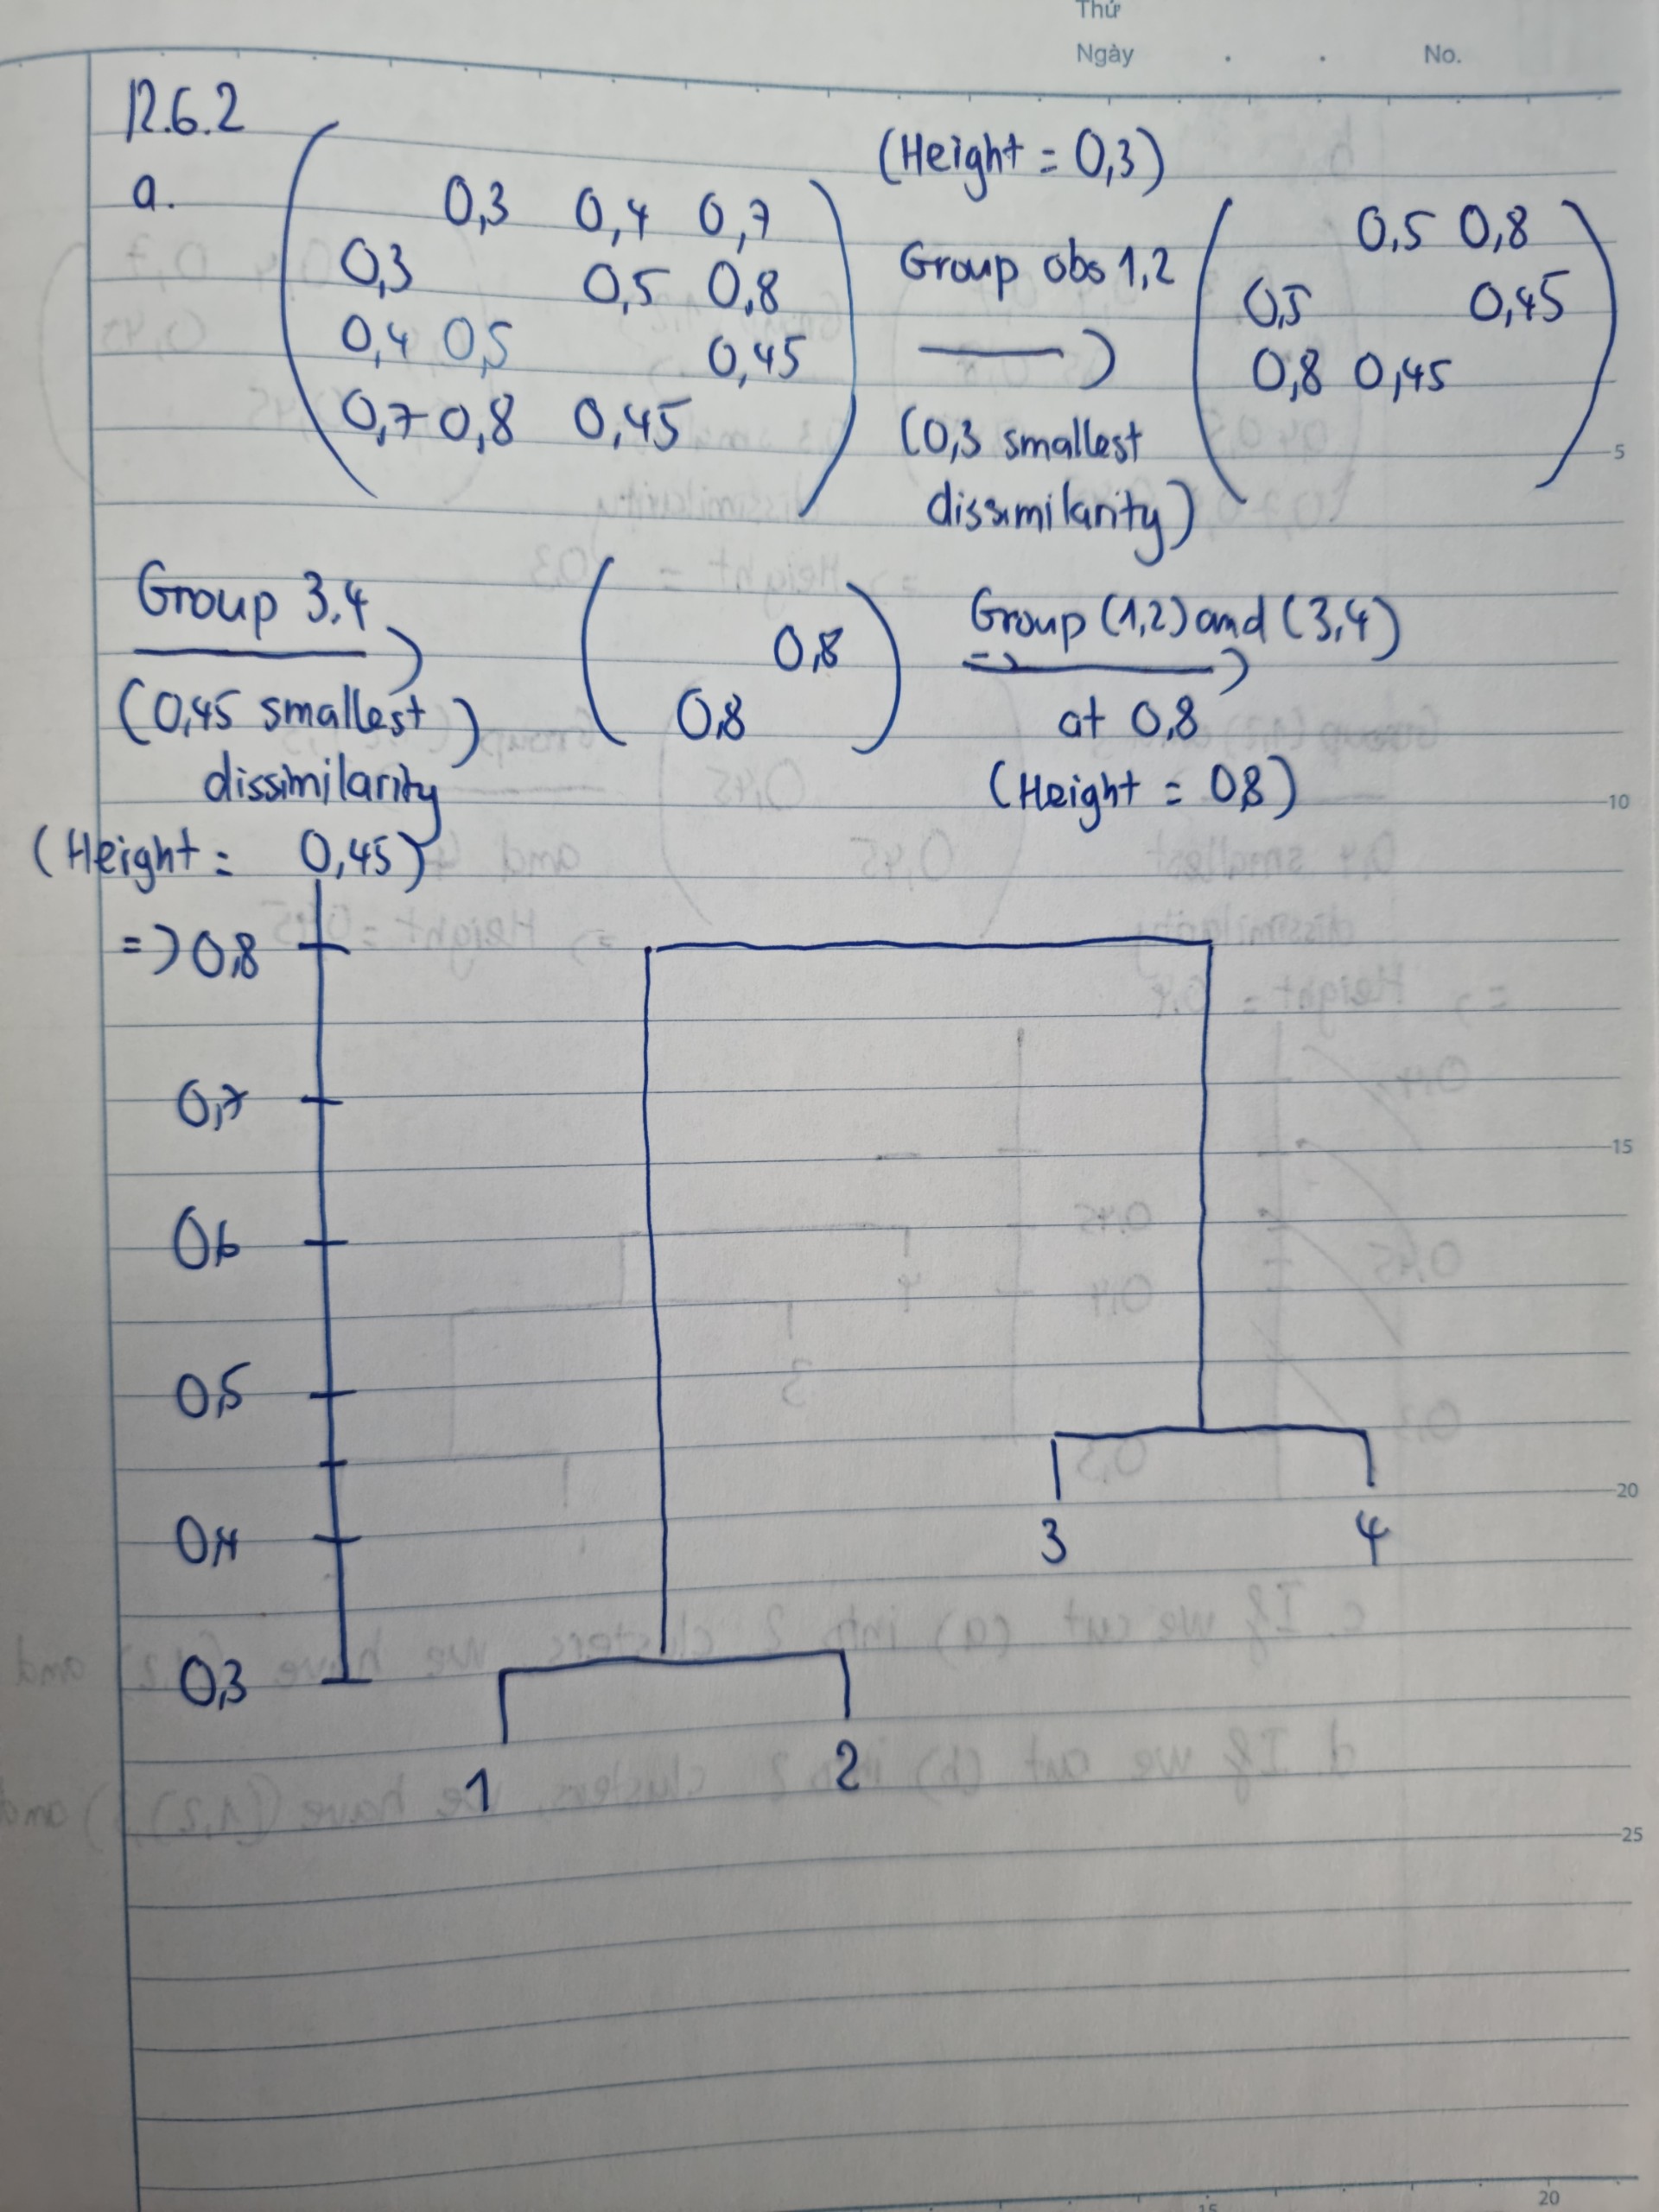 Thứ
Ngày . . No.
12.6.2
a.
0,3 0,4 0,7
0,3 0,5 0,8
0,4 0,5 0,45
0,7 0,8 0,45
(Height = 0,3)
Group obs 1,2
(0,3 smallest
dissimilarity)
0,5 0,8
0,5 0,45
0,8 0,45
5
Group 3,4
(0,45 smallest)
dissimilarity
(Height = 0,45)
0,8
0,8
Group (1,2) and (3,4)
=>
at 0,8
(Height = 0,8)
10
=> 0,8
0,7
15
0,6
0,5
20
3 4
0,4
0,3
1 2
25
15 20